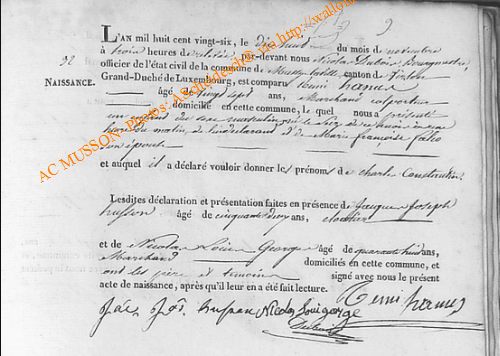 9
L'AN mil huit cent vingt-six, le dix huit du mois de novembre
à trois heures de relevée, par-devant nous Nicolas Dubois, Bourgmestre,
92
officier de l'état civil de la commune de canton de Virton
NAISSANCE.
Grand-Duché de Luxembourg, est comparu Remi hames
âgé de vingt sept ans, Marchand colporteur
domicilié en cette commune, le quel nous a présenté
un enfant du sexe masculin, né le
heure du matin, de lui déclarant et de Marie françoise
son épouse
et auquel il a déclaré vouloir donner les prénoms de charle Constantin.
Lesdites déclaration et présentation faites en présence de Jacques Joseph
husson âgé de cinquante deux ans, cloutier
et de Nicolas Louis George âgé de quarante huit ans,
Marchand domiciliés en cette commune, et
ont les père et témoins signé avec nous le présent
acte de naissance, après qu'il leur en a été fait lecture.
husson Nicolas Louis george Remi hames
AC MUSSON- Photo Archives de l'état via http://wallo